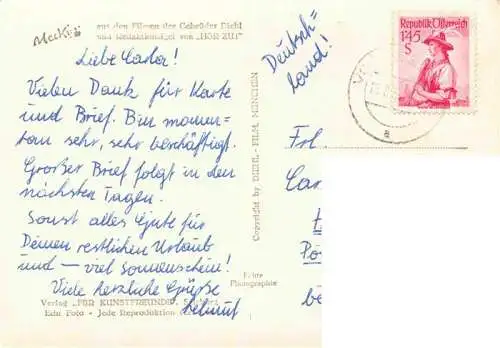 Mecki
aus den Filmen der Gebrüder Diehl
und Redaktionsigel von "HÖR ZU!"
Liebe Carla!
Vielen Dank für Karte
und Brief. Bin momen=
tan sehr, sehr beschäftigt.
Großer Brief folgt in den
nächsten Tagen.
Sonst alles Gute für
Deinen restlichen Urlaub
und — viel Sonnenschein!
Viele herzliche Grüße
Helmut
Verlag "FÜR KUNSTFREUNDE",
Echt Foto - Jede Reproduktion
Echte
Photographie
Copyright by DIEHL-FILM, MÜNCHEN
Deutsch=
land!
Republik Österreich
1'45
S
a
Frl.